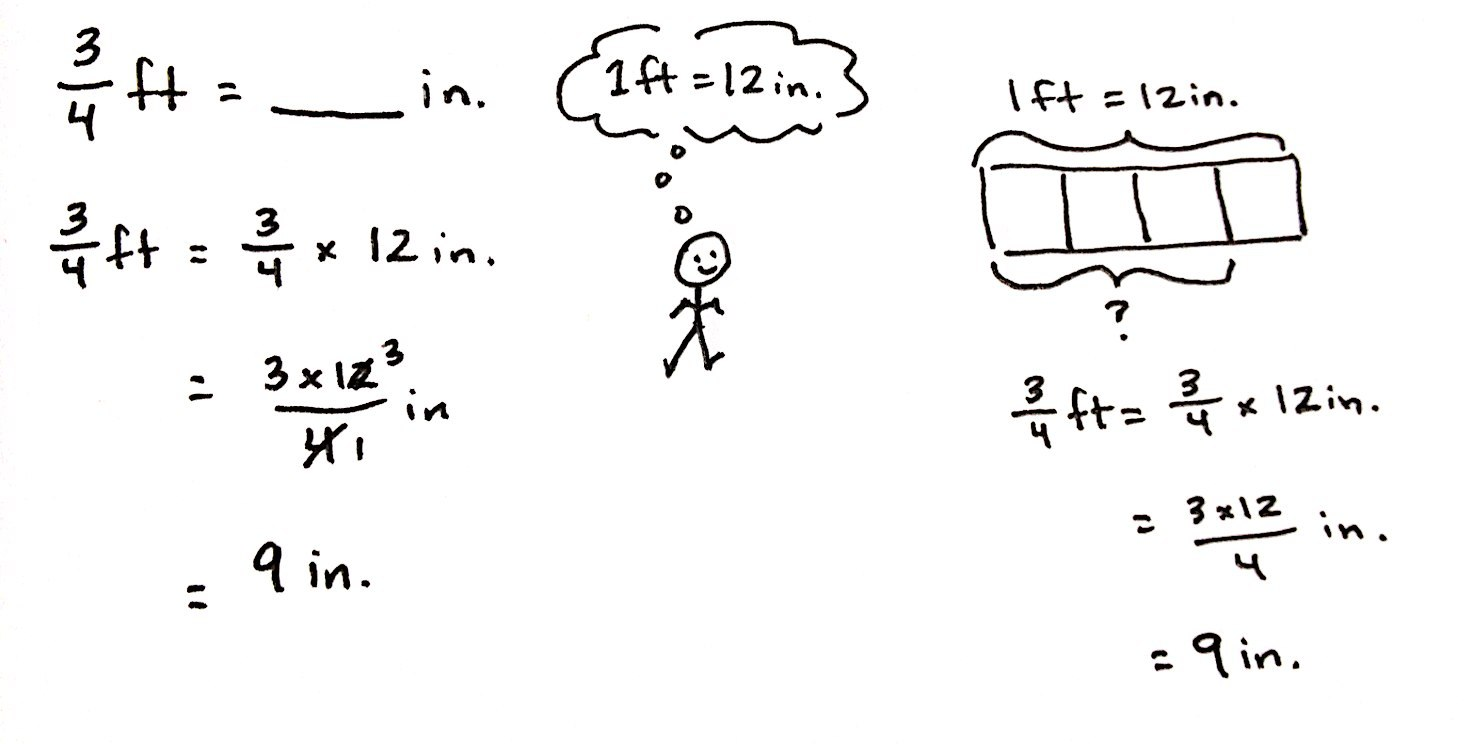 3/4 ft = ____ in.
3/4 ft = 3/4 × 12 in.
= 3 × 12 3 / 4 1 in
= 9 in.
1 ft = 12 in.
1 ft = 12 in.
?
3/4 ft = 3/4 × 12 in.
= 3 × 12 / 4 in.
= 9 in.